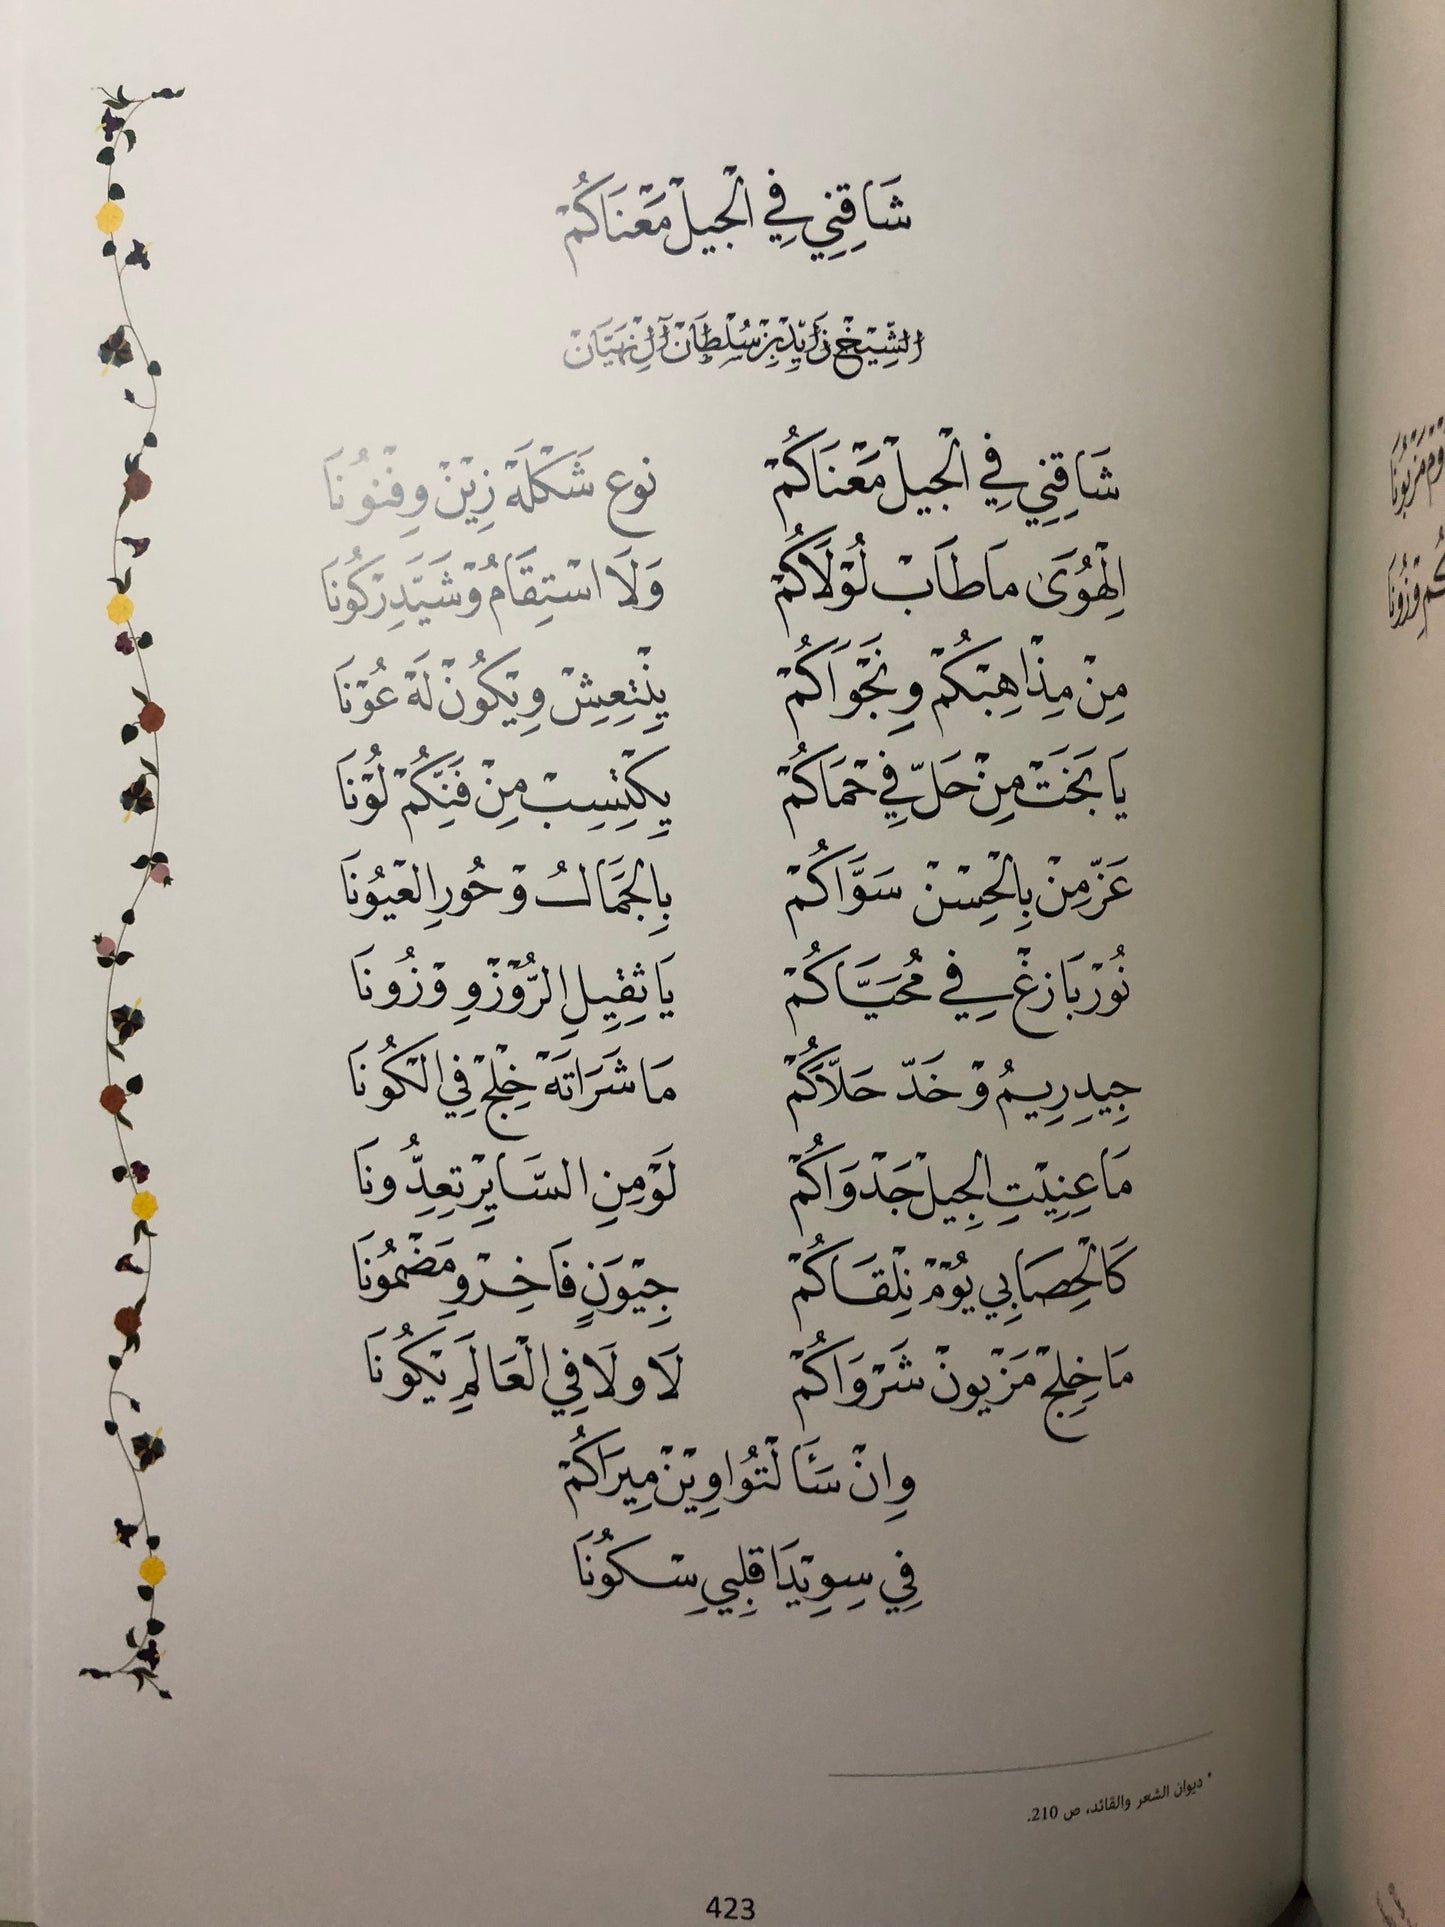 شَاقِنِي فِي الْجِيلْ مَعْنَاكُمْ
الشِّيْخْ زَايِدْ بِنْ سُلْطَانْ آلْ نِهَيَّانْ
شَاقِنِي فِي الْجِيلْ مَعْنَاكُمْ نوع شَكْلَهْ زِيْنْ وِفْنُونَا
اِلْهُوَىٰ مَا طَابْ لُوْلَاكُمْ وَلَا اسْتِقَامُ وْشَيَّدِرْكُونَا
مِنْ مِذْاهِبْكُمْ وِنَجْوَاكُمْ يِنْتِعِشْ وِيْكُونْ لَهْ عُوْنَا
يَا بَخَتْ مِنْ حَلّ فِي حْمَاكُمْ يِكْتِسِبْ مِنْ فَنِّكُمْ لُوْنَا
عَزّ مِنْ بِالْحِسِنْ سَوَّاكُمْ بِالْجَمَالُ وْحُورِ الْعَيُونَا
نُورْ بَازغْ فِي مُحَيَّاكُمْ يَا ثِقِيلِ الرُّوْزْ وِوْزُونَا
جِيدِ رِيمُ وْخَدّ حَلَّاكُمْ مَا شَرَاتَهْ خِلِجْ فِي الْكُونَا
مَا عِنِيْتِ الجِيلْ جَدْوَاكُمْ لَوْ مِنِ السَّايِرْ تِعِدُّونَا
كَالْحِصَابِي يُوْمْ نِلْقَاكُمْ جِيْوَنٍ فَاخِرْ وِمَضْمُونَا
مَا خِلِجْ مَزْيُونْ شَرْوَاكُمْ لَا وِلَا فِي الْعَالَمِ يْكُونَا
وِانْ سَأَلْتُوا وِيْنْ مِيرَاكُمْ
فِي سِوِيْدَا قَلِبِي سِكُونَا
* ديوان الشعر والقائد، ص 210.
423